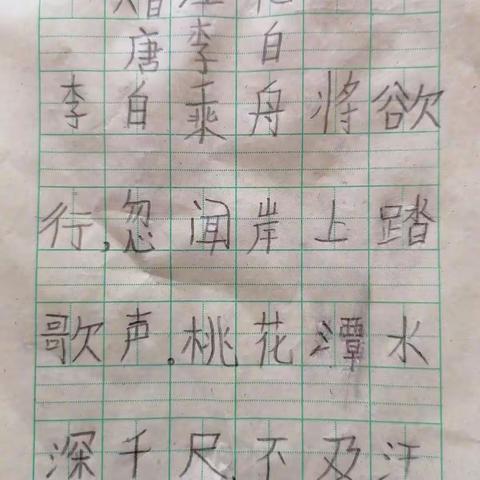 唐李白
李自乘舟将欲
行,忽闻岸上踏
歌声。桃花潭水
深千尺,不及汪